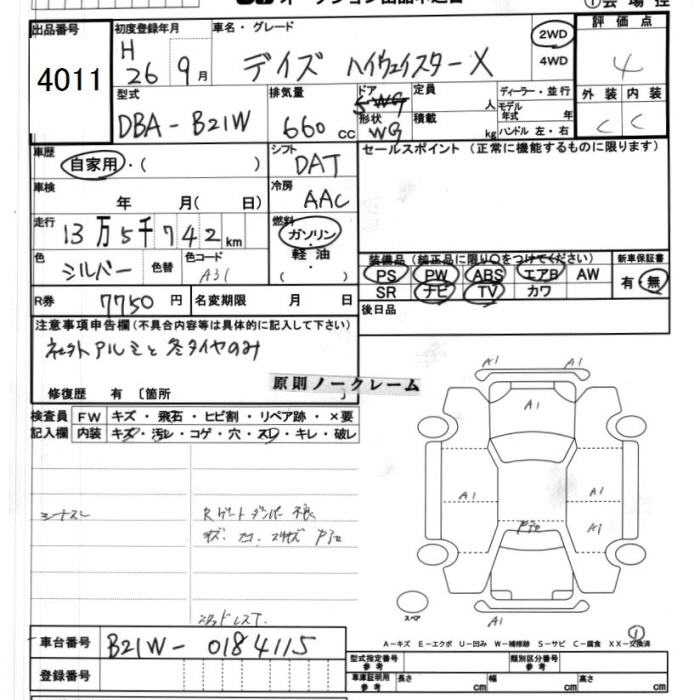 出品番号 初度登録年月 車名・グレード 2WD 4WD 評価点
4011 H 26 9月 デイズ ハイウェイスターX 4
型式 排気量 ドア 形状 定員 人 ディーラー・並行 外装 内装
DBA-B21W 660cc 5WG WG 積載 kg モデル年式 年 ハンドル 左・右 C C
車歴 自家用・( ) シフト DAT セールスポイント(正常に機能するものに限ります)
車検 年 月( 日) 冷房 AAC
走行 13万5千742km 燃料 ガソリン・軽油・( )
色 シルバー 色替 色コード A31
装備品(純正品に限り〇をつけてください) 新車保証書
PS PW ABS エアB AW 有・無
SR ナビ TV カワ
R券 7750円 名変期限 月 日 後日品
注意事項申告欄(不具合内容等は具体的に記入して下さい)
社外アルミと冬タイヤのみ
修復歴 有〔箇所 〕
原則ノークレーム
検査員記入欄 FW キズ・飛石・ヒビ割・リペア跡・×要
内装 キズ・汚レ・コゲ・穴・スレ・キレ・破レ
シートスレ Rゲートダンパー不良
A1 A1
A1
A1 A1
A1
A1
スペア
A-キズ E-エクボ U-凹み W-補修跡 S-サビ C-腐食 XX-交換済
車台番号 B21W-0184115
登録番号
型式指定番号 参考 類別区分番号 参考
車庫証明用 参考 長さ cm 幅 cm 高さ cm